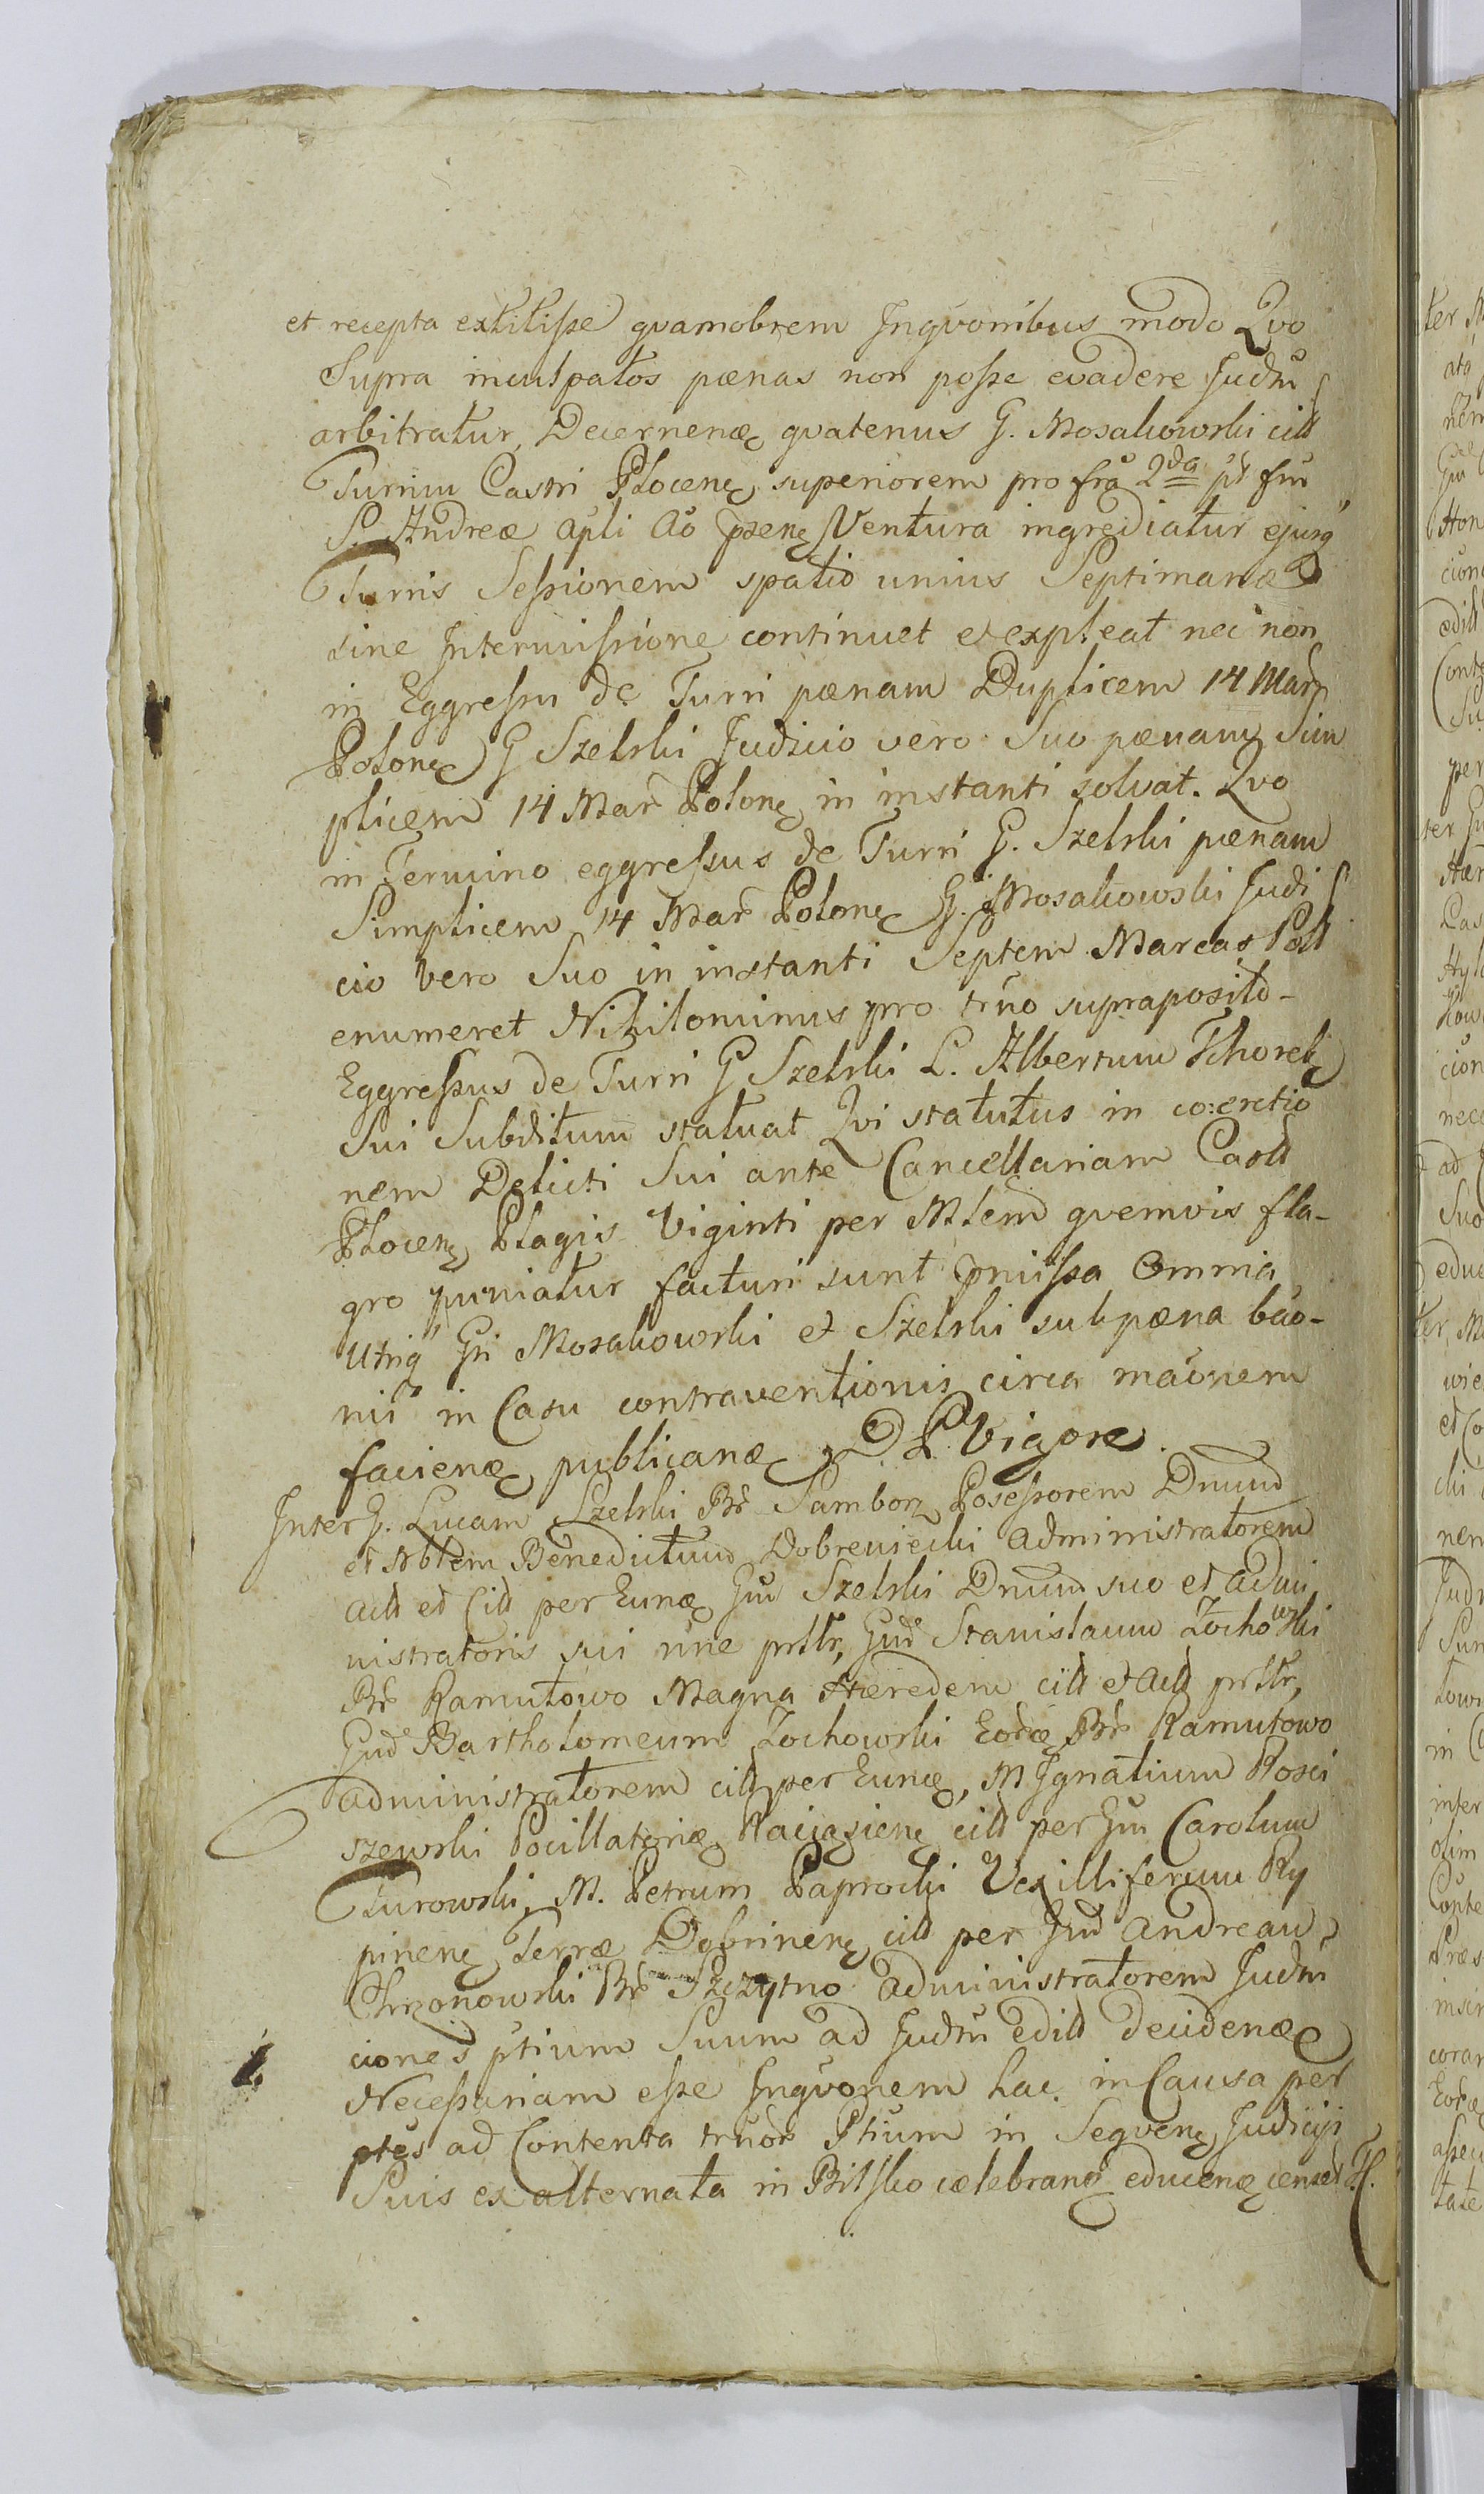 et recepta extitisse qvamobrem Inqvonibus modo Qvo
Supra inculpatos pænas non posse evadere Judm
arbitratur, Decernenæ qvatenus G. Mosakowski citt
Turrim Castri Plocenę superiorem pro fra 2da pt fm
S. Andreæ Apli Ao præsenę Ventura ingrediatur ejusq
Turris Sessionem spatio unius Septimanæ
sine Intermissione continuet et expleat nec non
in Eggressu de Turri pænam Duplicem 14 Mar
Polonę G Szelski Judicio vero Suo pænam Sim
plicem 14 Mar Polonę in instanti solvat. Qvo
in Termino eggressus de Turri G. Szelski pænam
Simplicem 14 Mar Polonę G. Mosakowski Judi
cio vero Suo in instanti Septem Marcas Poll
enumeret Nihilominus pro trno supraposito-
Eggressus de Turri G Szelski L. Albertum Tchorek
Sui Subditum statuat Qvi statutus in co:ercitio
nem Delicti Sui ante Cancellariam Castr
Plocenę Plagis Viginti per Mlem qvemvis fla-
gro puniatur facturi sunt præmissa Omnia
Utriq Gri Mosakowski et Szelski sub pæna bao-
nis in Casu contraventionis circa maonem
facienæ publicanæ, D L. Vigore.
Inter G. Lucam Szelski Br Samborz Possessorem Dnum
et Nbtem Benedictum Dobreniecki Administratorem
Actt et Citt per Eunæ Gm Szelski Dnum suo et admi
nistratoris sui nne prttr, Gud Stanislaum Zochowski
Br Ramutowo Magna Hæredem citt et Actt prttr,
Gud Bartholomeum Zochowski Eordæ Br Ramutowo
administratorem citt per Eunæ, M Ignatium Rosci
szewski Pocillatoriæ Raciązienę citt per Gm Carolum
Turowski, M. Petrum Paprocki Vexilliferum Ry
pinenę Terræ Dobrinenę citt per Gm Andream
Chrzonowski Br Szczytno administratorem Judm
ciones ptium Suum ad Judm editt decidenæ
Necessariam esse Inqvonem hac in Causa per
ptes ad Contenta trnor Ptium in Seqvenę Judicijs
Suis ex alternata in Bilsko celebrand educenę censet.